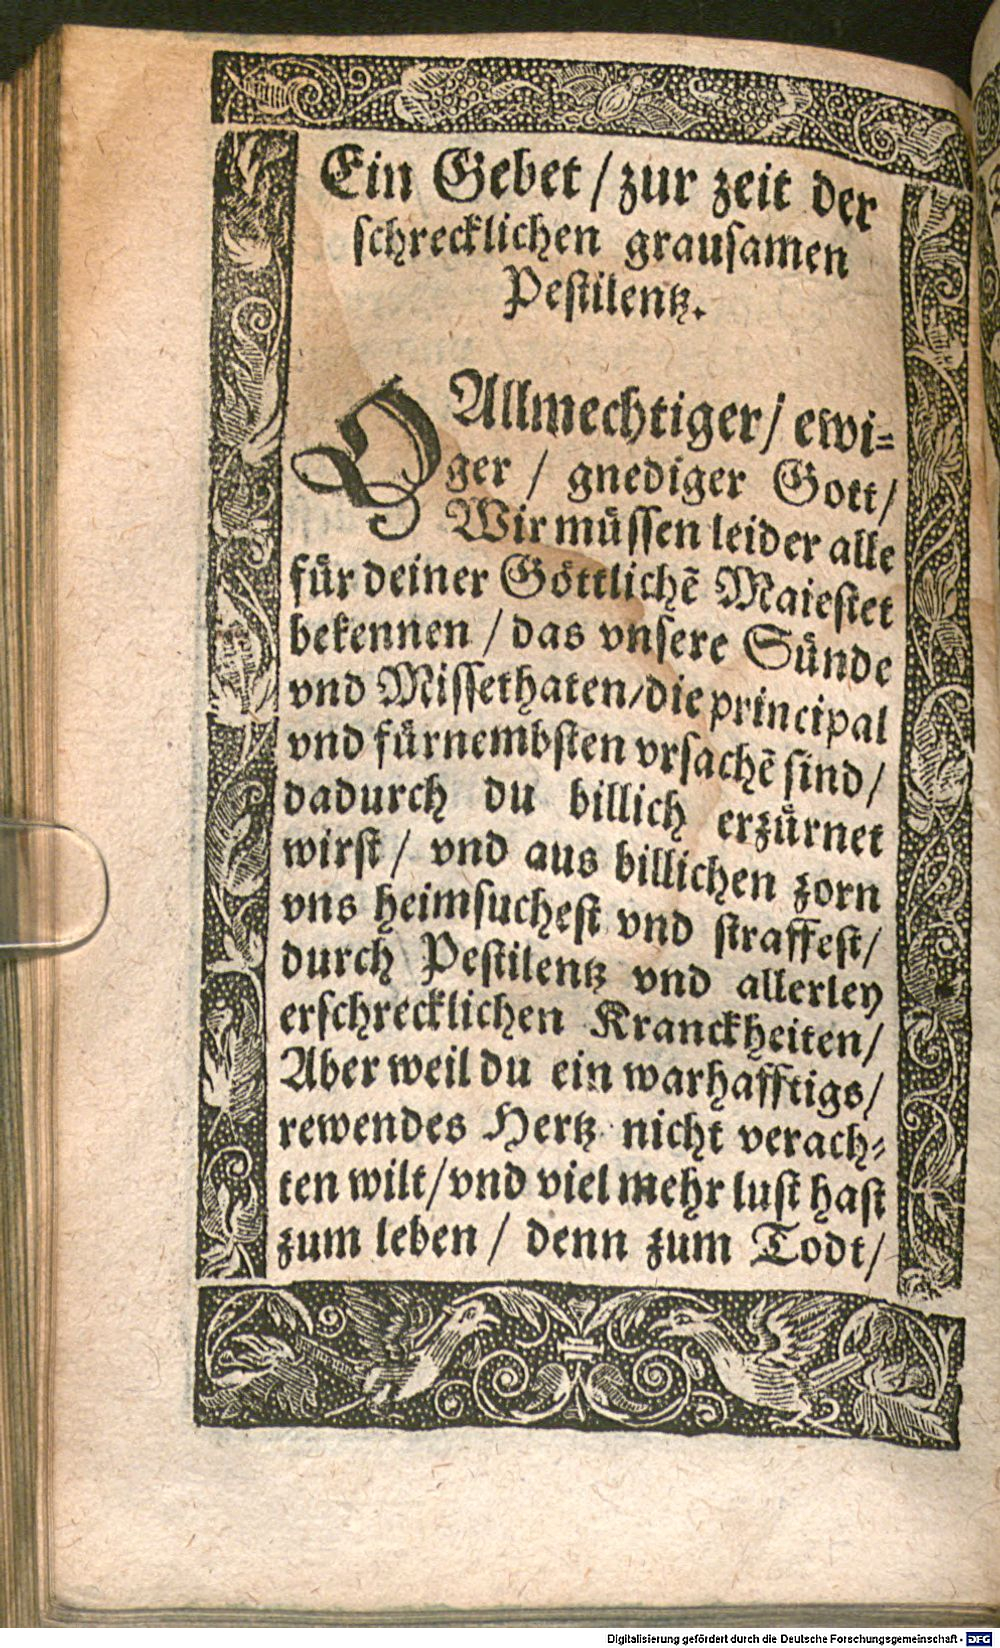 Ein Gebet / zur zeit der
schrecklichen grausamen
Pestilentz.
O Allmechtiger / ewi⸗
ger / gnediger Gott /
Wir müssen leider alle
für deiner Göttlichē Maiestet
bekennen / das vnsere Sünde
vnd Missethaten / die principal
vnd fürnembsten vrsachē sind /
dadurch du billich erzürnet
wirst / vnd aus billichen zorn
vns heimsuchest vnd straffest /
durch Pestilentz vnd allerley
erschrecklichen Kranckheiten /
Aber weil du ein warhafftigs /
rewendes Hertz nicht verach⸗
ten wilt / vnd viel mehr lust hast
zum leben / denn zum Todt /
Digitalisierung gefördert durch die Deutsche Forschungsgemeinschaft - DFG